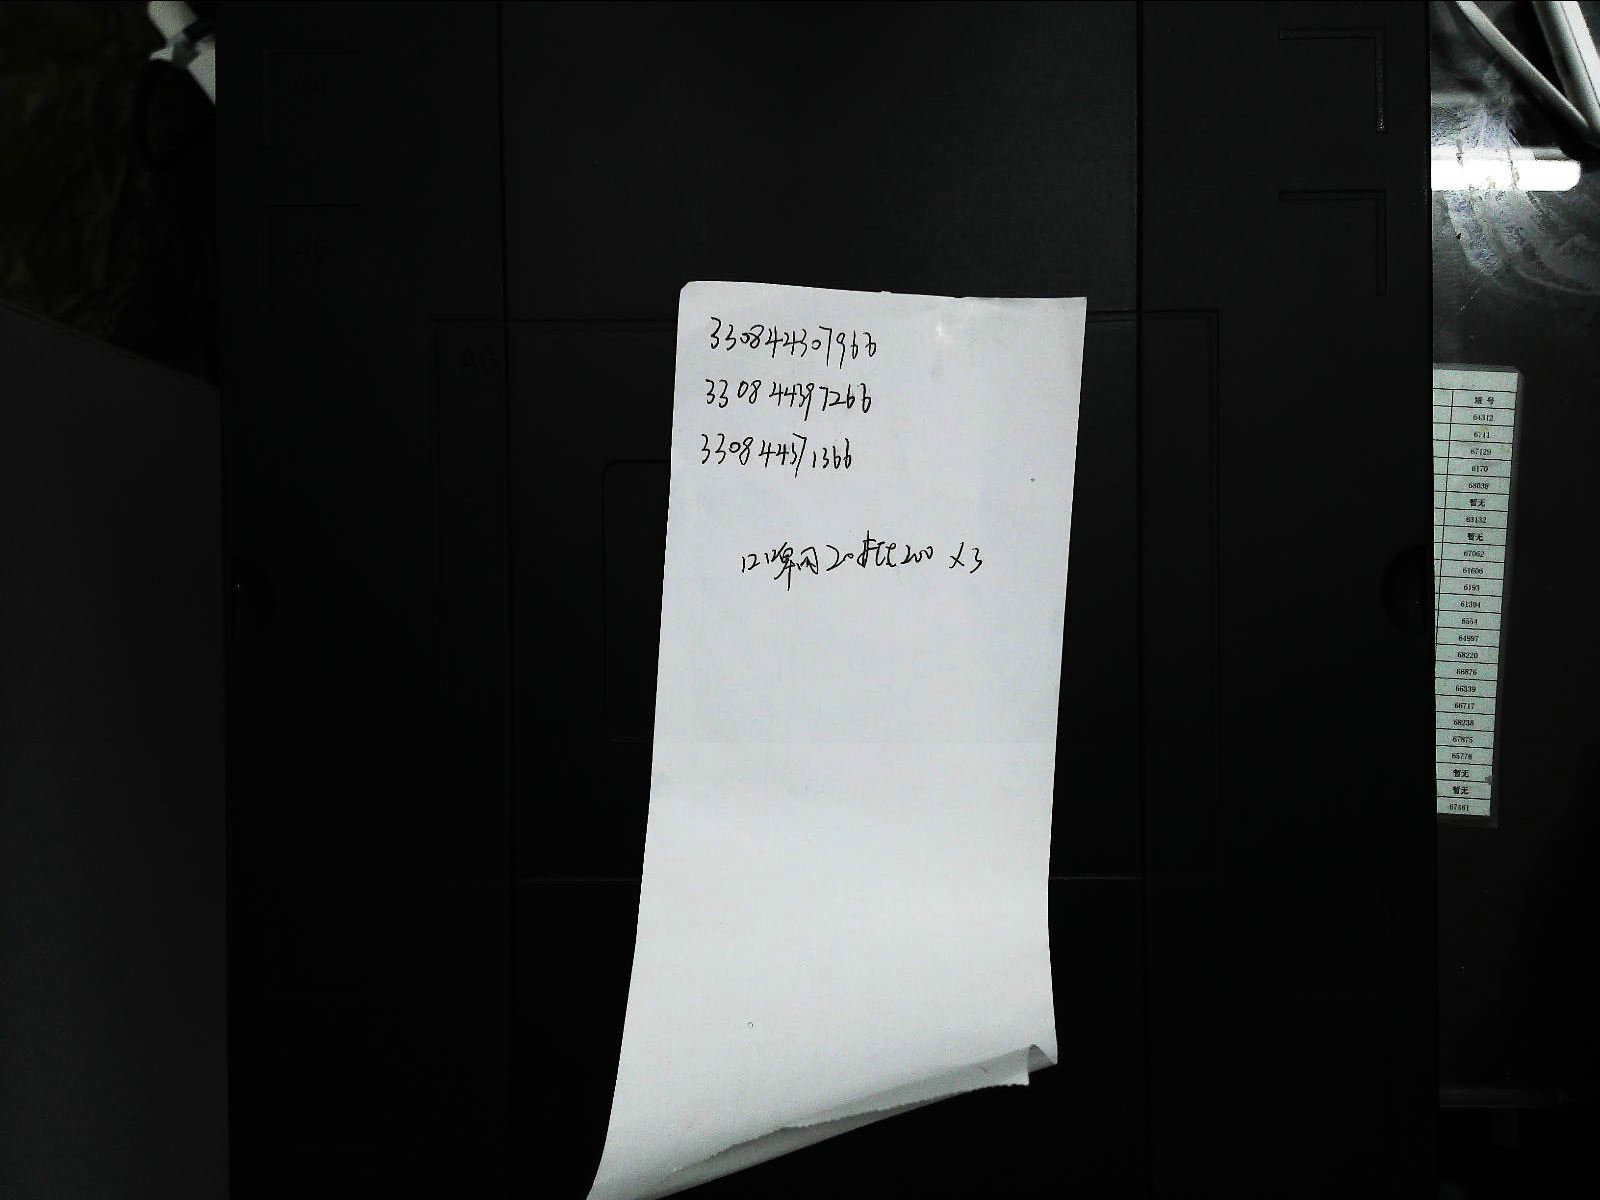 330844307966
330844397266
330844371366
口碑网20抵200 ×3
班号
64312
6711
67129
6170
68038
暂无
63132
暂无
67062
61606
6193
61394
6554
64997
68220
66876
66339
66717
68238
67875
65778
暂无
暂无
67461